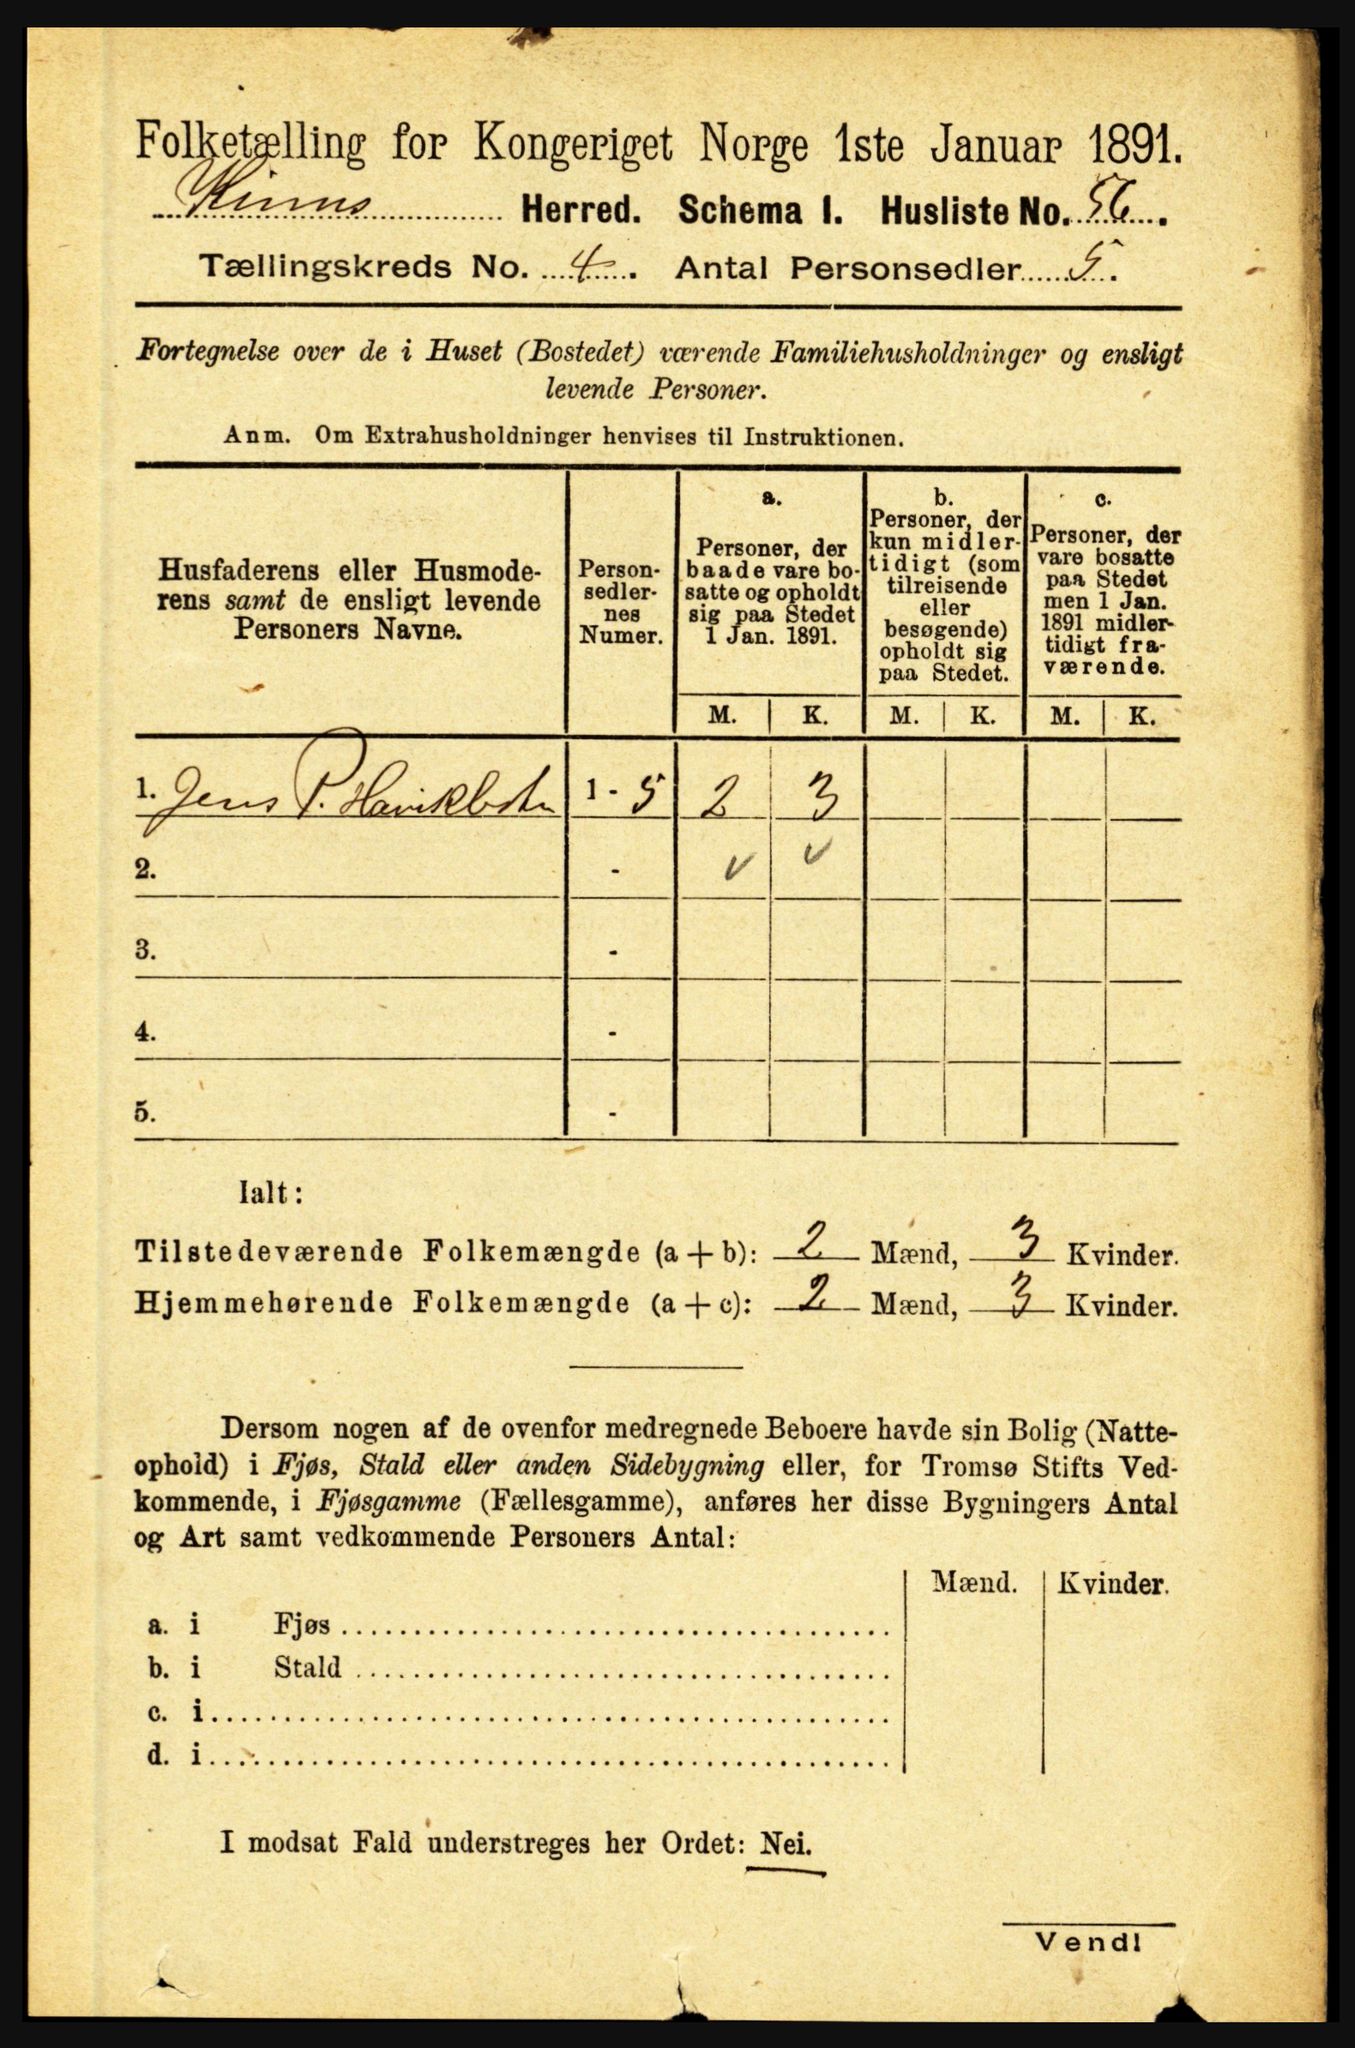 Folketælling for Kongeriget Norge 1ste Januar 1891.
Kinns Herred. Schema I. Husliste No. 56.
Tællingskreds No. 4. Antal Personsedler 5.
Fortegnelse over de i Huset (Bostedet) værende Familiehusholdninger og ensligt
levende Personer.
Anm. Om Extrahusholdninger henvises til Instruktionen.
Husfaderens eller Husmode-
rens samt de ensligt levende
Personers Navne.
Person-
sedler-
nes
Numer.
a.
Personer, der
baade vare bo-
satte og opholdt
sig paa Stedet
1 Jan. 1891.
b.
Personer, der
kun midler-
tidigt (som
tilreisende
eller
besøgende)
opholdt sig
paa Stedet.
c.
Personer, der
vare bosatte
paa Stedet
men 1 Jan.
1891 midler-
tidigt fra-
værende.
M. K. M. K. M. K.
1. Jens P. 1 - 5 2 3
2. - v v
3. -
4. -
5. -
Ialt:
Tilstedeværende Folkemængde (a + b): 2 Mænd, 3 Kvinder.
Hjemmehørende Folkemængde (a + c): 2 Mænd, 3 Kvinder.
Dersom nogen af de ovenfor medregnede Beboere havde sin Bolig (Natte-
ophold) i Fjøs, Stald eller anden Sidebygning eller, for Tromsø Stifts Ved-
kommende, i Fjøsgamme (Fællesgamme), anføres her disse Bygningers Antal
og Art samt vedkommende Personers Antal:
Mænd. Kvinder.
a. i Fjøs
b. i Stald
c. i
d. i
I modsat Fald understreges her Ordet: Nei.
Vend!